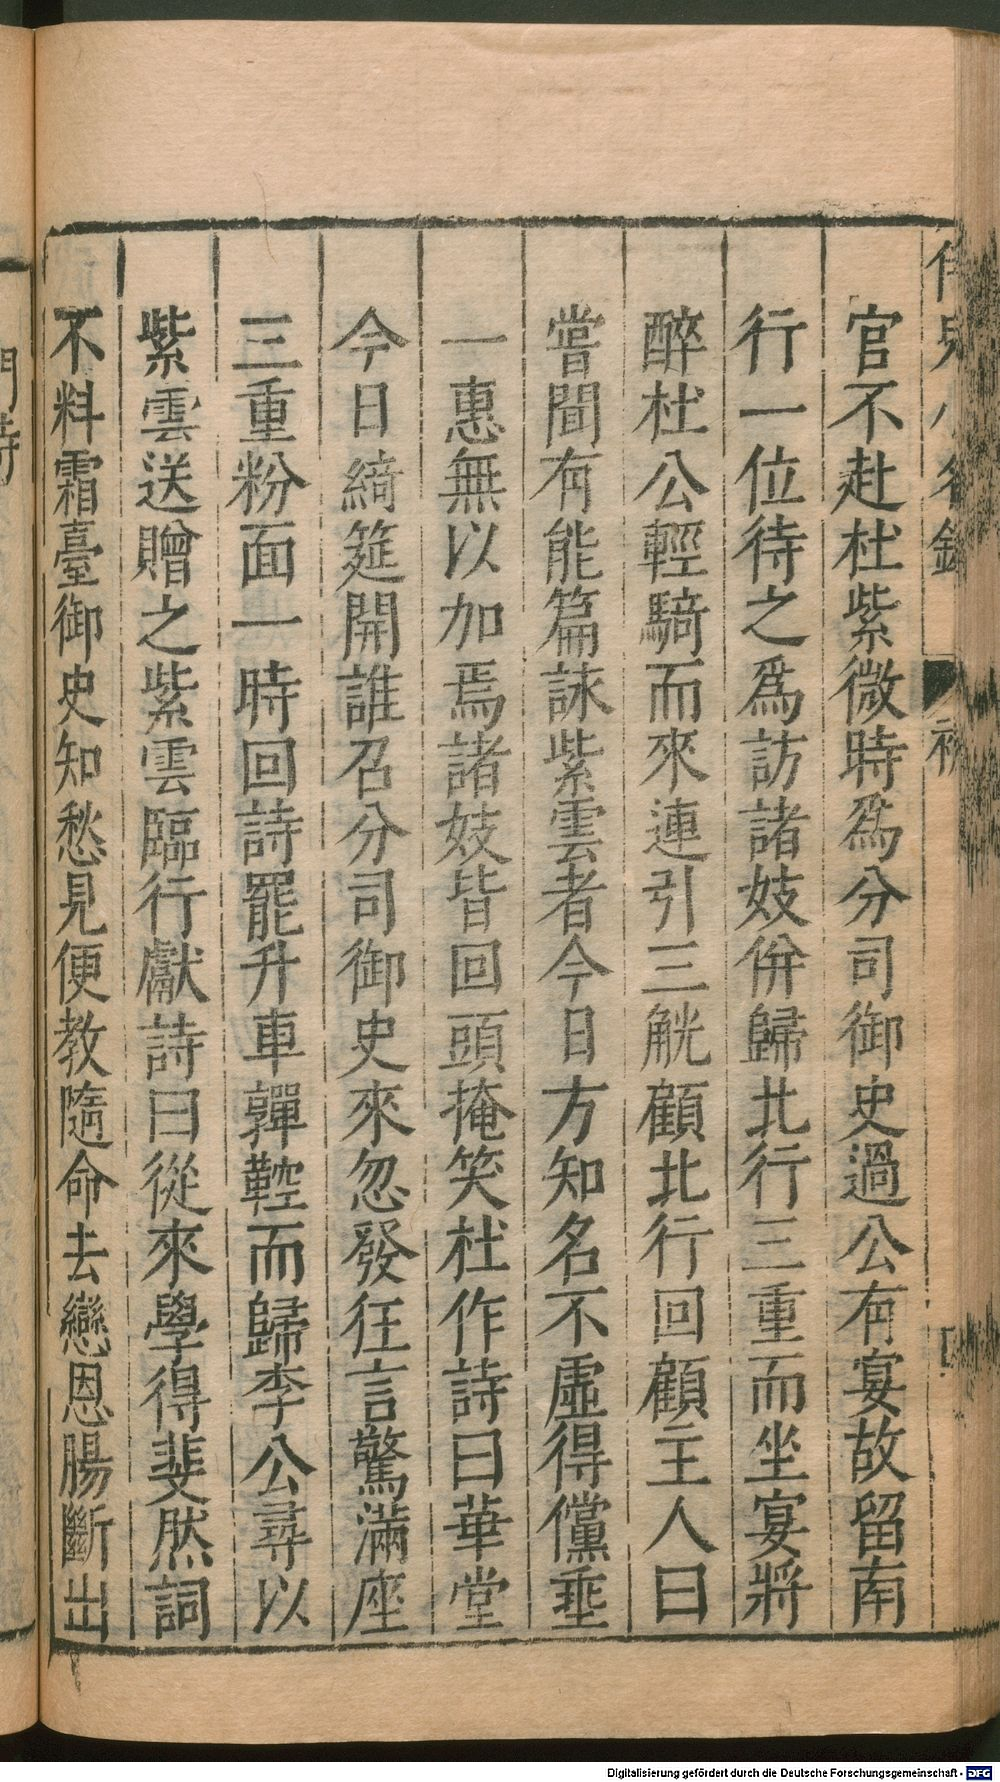 侍兒小名錄
官不赴杜紫微時爲分司御史過公有宴故留南
行一位待之爲訪諸妓併歸北行三重而坐宴將
醉杜公輕騎而來連引三觥顧北行回顧主人曰
嘗聞有能篇詠紫雲者今日方知名不虛得儻垂
一惠無以加焉諸妓皆回頭掩笑杜作詩曰華堂
今日綺筵開誰召分司御史來忽發狂言驚滿座
三重粉面一時回詩罷升車嚲鞚而歸李公尋以
紫雲送贈之紫雲臨行獻詩曰從來學得斐然詞
不料霜臺御史知愁見便教隨命去戀恩腸斷出
Digitalisierung gefördert durch die Deutsche Forschungsgemeinschaft - DFG